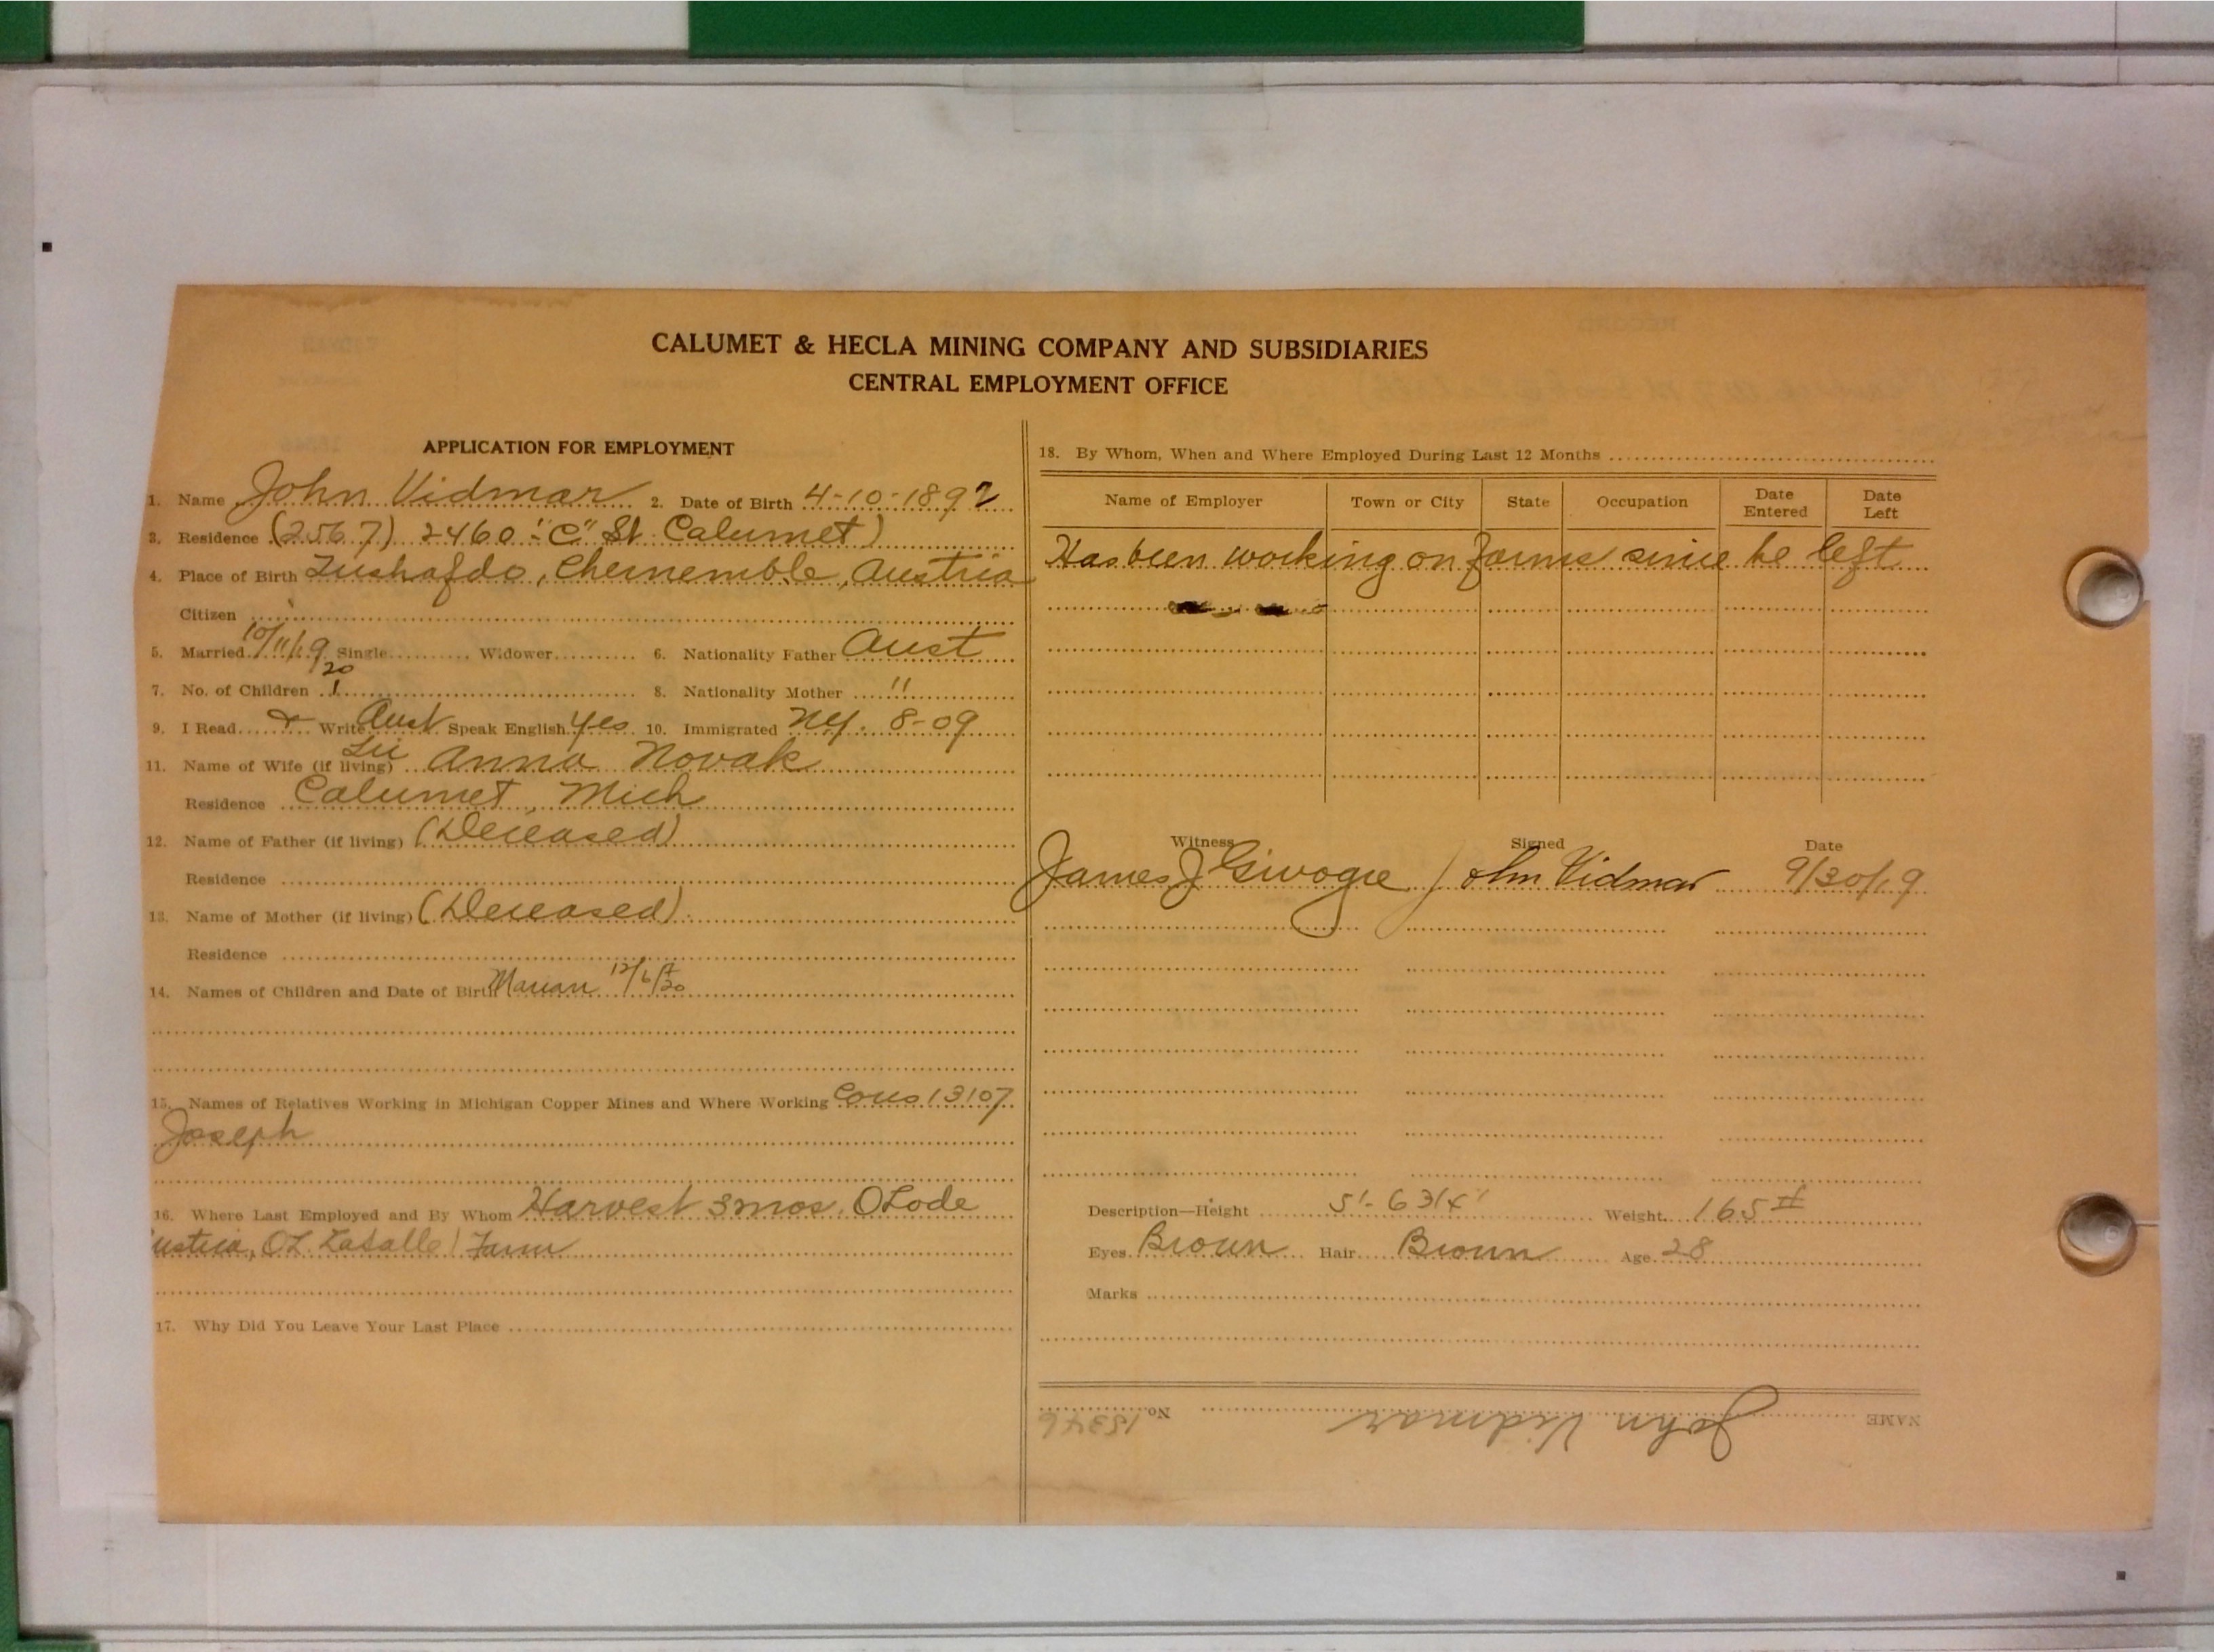 CALUMET & HECLA MINING COMPANY AND SUBSIDIARIES
CENTRAL EMPLOYMENT OFFICE
APPLICATION FOR EMPLOYMENT
1. Name John Vidmar 2. Date of Birth 4-10-1892
3. Residence (2567) 2460 "C" St. Calumet)
4. Place of Birth Tushafdo, Chernemble, Austria
Citizen
5. Married 10/11/19 Single Widower 6. Nationality Father Aust
20
7. No. of Children 1 8. Nationality Mother "
9. I Read & Write Aust Speak English yes 10. Immigrated NY. 8-09
11. Name of Wife (if living) Anna Novak
Residence Calumet, Mich
12. Name of Father (if living) (Deceased)
Residence
13. Name of Mother (if living) (Deceased)
Residence
14. Names of Children and Date of Birth Marian 12/6/20
15. Names of Relatives Working in Michigan Copper Mines and Where Working Cons 13107
Joseph
16. Where Last Employed and By Whom Harvest 3 mos. O Lode
OL LaSalle) Farm
17. Why Did You Leave Your Last Place
18. By Whom, When and Where Employed During Last 12 Months
Name of Employer Town or City State Occupation Date Entered Date Left
Has been working on farms since he left
Witness Signed Date
James J John Vidmar 9/30/19
Description—Height 5'- 6 3/4" Weight 165#
Eyes Brown Hair Brown Age 28
Marks
NAME John Vidmar No. 15346